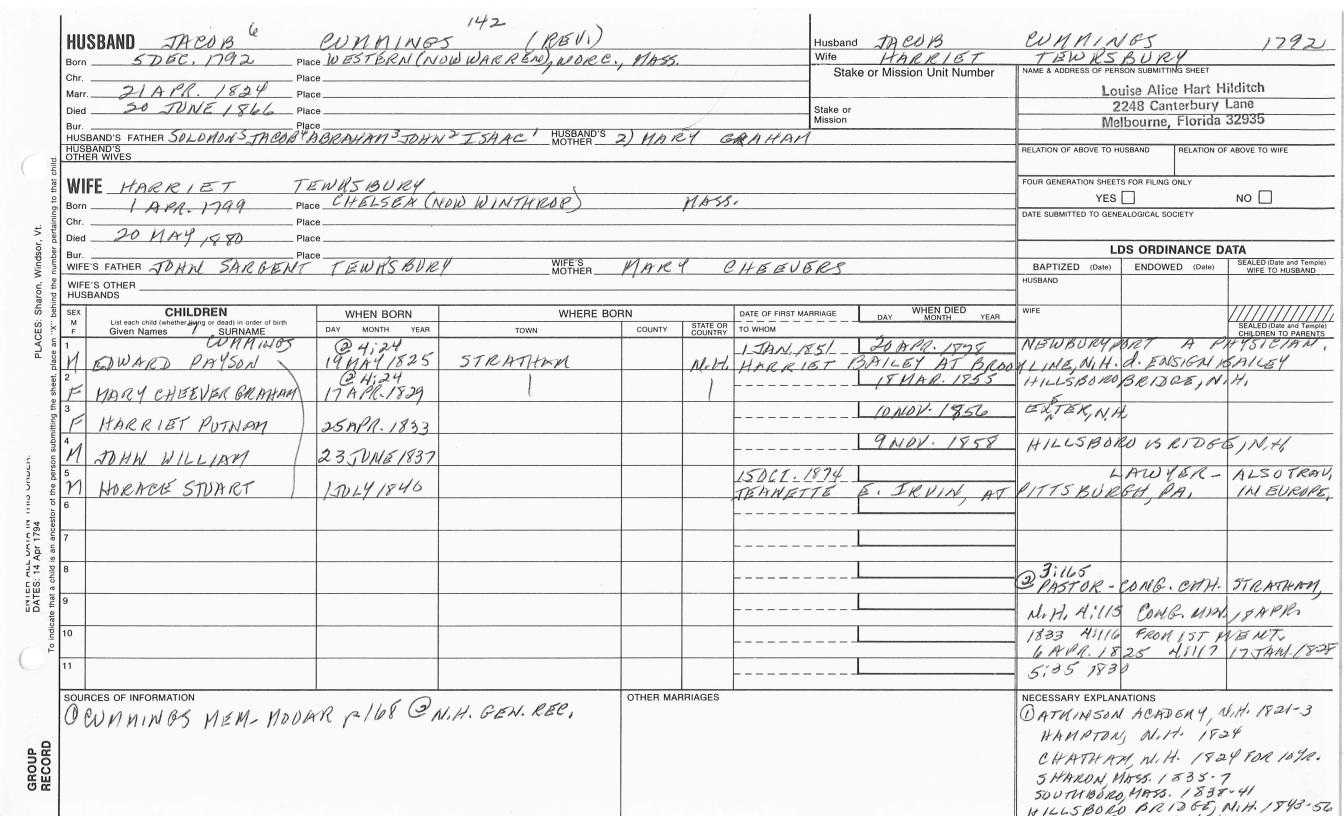 142
HUSBAND JACOB 6 CUMMINGS (REV.)
Born 5 DEC. 1792 Place WESTERN (NOW WARREN), WORC., MASS.
Chr. Place
Marr. 21 APR. 1824 Place
Died 20 JUNE 1866 Place
Bur. Place
HUSBAND'S FATHER SOLOMON5 JACOB4 ABRAHAM3 JOHN2 ISAAC1 HUSBAND'S MOTHER 2) MARY GRAHAM
HUSBAND'S OTHER WIVES
WIFE HARRIET TEWKSBURY
Born 1 APR. 1799 Place CHELSEA (NOW WINTHROP) MASS.
Chr. Place
Died 20 MAY 1880 Place
Bur. Place
WIFE'S FATHER JOHN SARGENT TEWKSBURY WIFE'S MOTHER MARY CHEEVERS
WIFE'S OTHER HUSBANDS
Husband JACOB CUMMINGS 1792
Wife HARRIET TEWKSBURY
Stake or Mission Unit Number
Stake or Mission
NAME & ADDRESS OF PERSON SUBMITTING SHEET
Louise Alice Hart Hilditch
2248 Canterbury Lane
Melbourne, Florida 32935
RELATION OF ABOVE TO HUSBAND RELATION OF ABOVE TO WIFE
FOUR GENERATION SHEETS FOR FILING ONLY
YES NO
DATE SUBMITTED TO GENEALOGICAL SOCIETY
LDS ORDINANCE DATA
BAPTIZED (Date) ENDOWED (Date) SEALED (Date and Temple) WIFE TO HUSBAND
HUSBAND
WIFE
SEALED (Date and Temple) CHILDREN TO PARENTS
SEX M F
CHILDREN
List each child (whether living or dead) in order of birth
Given Names SURNAME
WHEN BORN
DAY MONTH YEAR
WHERE BORN
TOWN COUNTY STATE OR COUNTRY
DATE OF FIRST MARRIAGE
TO WHOM
WHEN DIED
DAY MONTH YEAR
CUMMINGS
1 @ 4:24 1 JAN. 1851 20 APR. NEWBURYPORT A PHYSICIAN.
M EDWARD PAYSON 19 MAY 1825 STRATHAM N.H. HARRIET BAILEY AT BROOKLINE, N.H. d. ENSIGN BAILEY
2 @ 4:24 18 MAR. 1855 HILLSBORO BRIDGE, N.H.
F MARY CHEEVER GRAHAM 17 APR. 1829
3 10 NOV. 1856 EXETER, N.H.
F HARRIET PUTNAM 25 APR. 1833
4 9 NOV. 1858 HILLSBORO BRIDGE, N.H.
M JOHN WILLIAM 23 JUNE 1837
5 15 OCT. 1874 LAWYER - ALSO TRAV.
M HORACE STUART 1 JULY 1840 JEANETTE E. IRVIN, AT PITTSBURGH, PA. IN EUROPE.
6
7
8
9
10
11
② 3:165
PASTOR - CONG. CHH. STRATHAM,
N.H. 4:115 CONG. MIN. 18 APR.
1833 4:116 FROM 1ST
6 APR. 1825 4:117 17 JAN. 1828
5:35 1830
SOURCES OF INFORMATION
① CUMMINGS MEM- MOOAR p-168 ② N.H. GEN. REC.
OTHER MARRIAGES
NECESSARY EXPLANATIONS
① ATKINSON ACADEMY, N.H. 1821-3
HAMPTON, N.H. 1824
CHATHAM, N.H. 1824 FOR 10 YR.
SHARON, MASS. 1835-7
SOUTHBORO, MASS. 1838-41
HILLSBORO BRIDGE, N.H. 1843-56
PLACES: Sharon, Windsor, Vt.
ENTER ALL DATA IN THIS ORDER:
DATES: 14 Apr 1794
To indicate that a child is an ancestor of the person submitting the sheet, place an "X" behind the number pertaining to that child.
GROUP RECORD